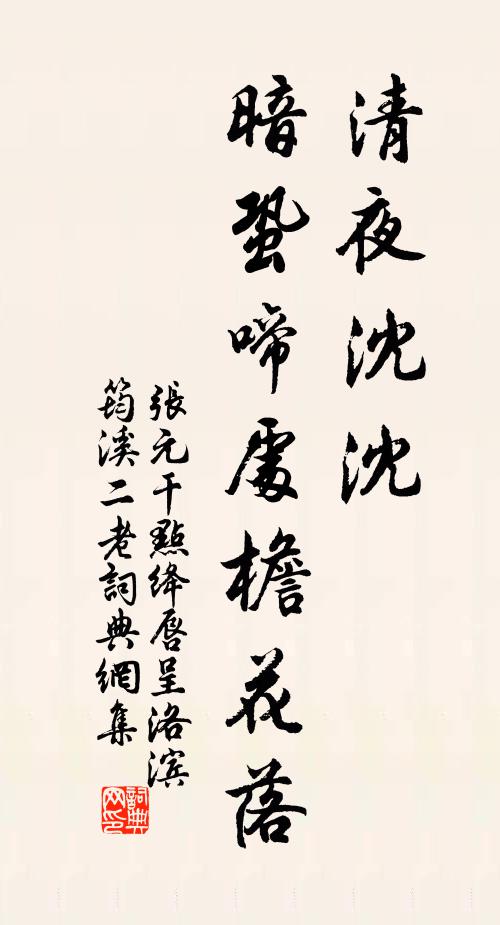 清夜沈沈
暗蛩啼處檐花落
張元干點絳唇呈洛滨
筠溪二老詞典網集
詞典
网印